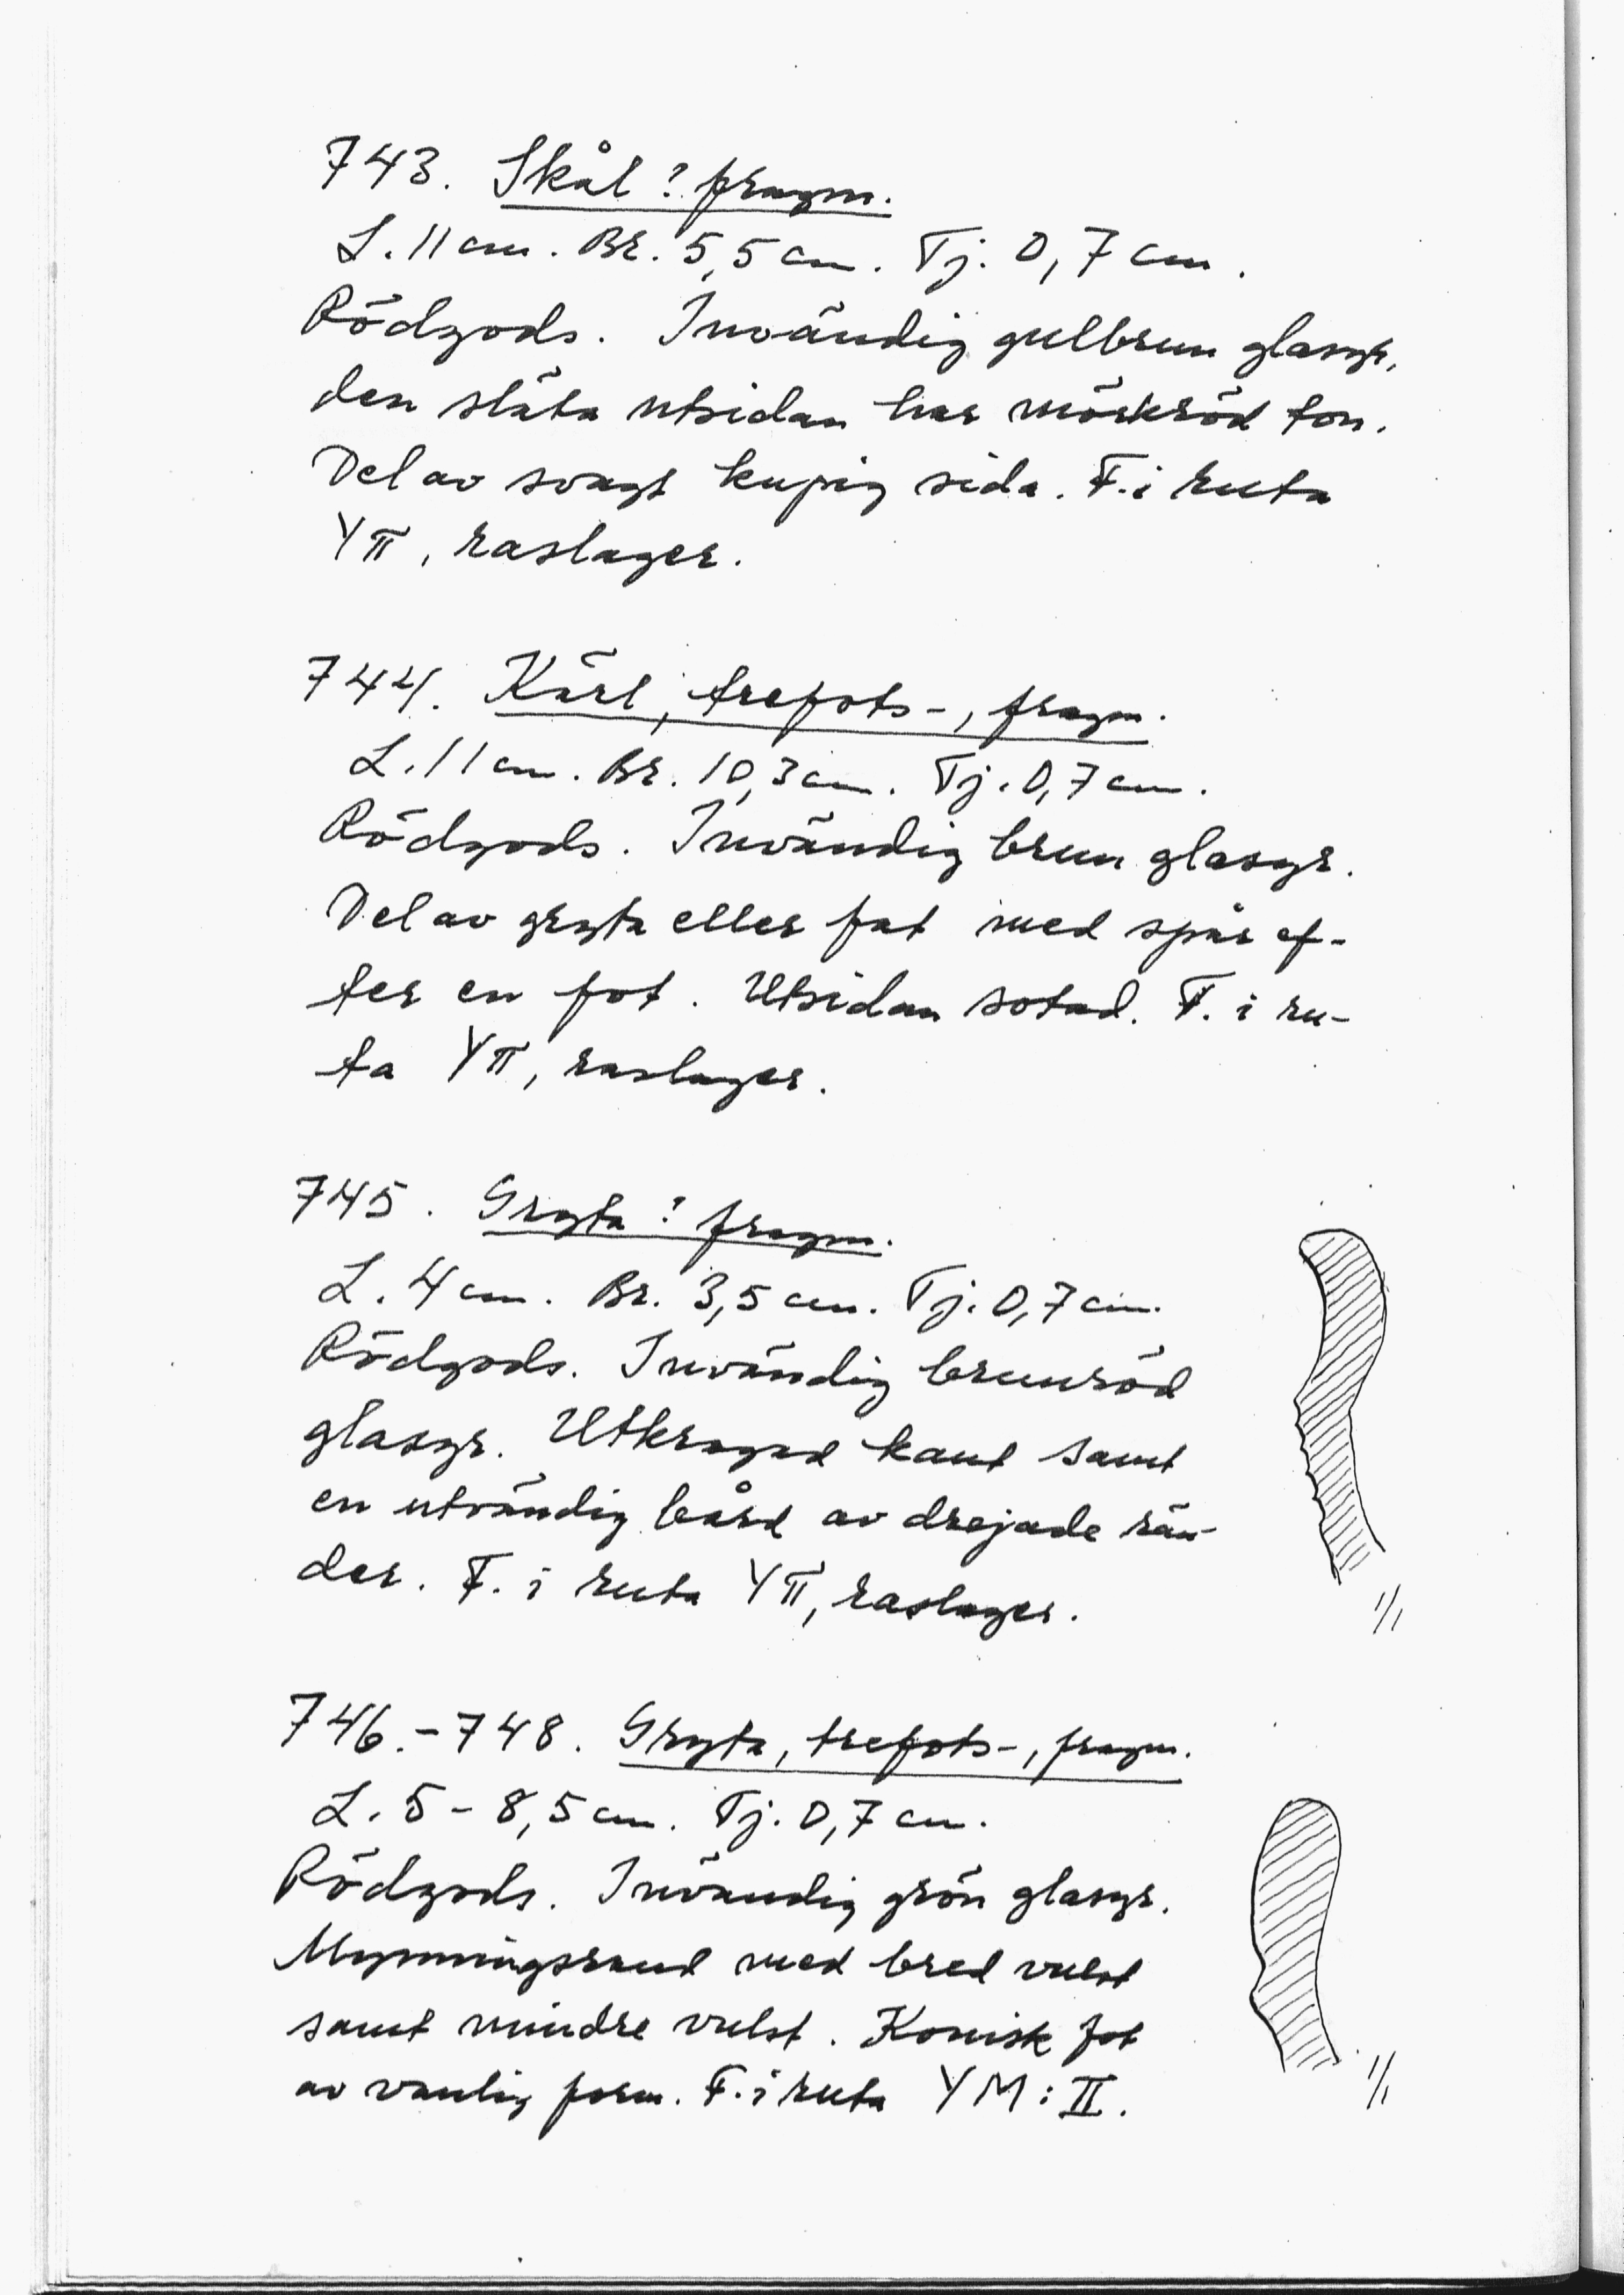 743. Skål? fragm.
L. 11 cm. Br. 5,5 cm. Tj. 0,7 cm.
Rödgods. Invändig gulbrun glasyr,
den släta utsidan har mörkröd ton.
Del av svagt kupig sida. F. i ruta
YΠ, raslager.
744. Kärl, trefots-, fragm.
L. 11 cm. Br. 10,3 cm. Tj. 0,7 cm.
Rödgods. Invändig brun glasyr.
Del av gryta eller fat med spår ef-
ter en fot. Utsidan sotad. F. i ru-
ta YΠ, raslager.
745. Gryta? fragm.
L. 4 cm. Br. 3,5 cm. Tj. 0,7 cm.
Rödgods. Invändig brunröd
glasyr. Utkragad kant samt
en utvändig bård av drejade rän-
der. F. i ruta YΠ, raslager.
1/1
746.-748. Gryta, trefots-, fragm.
L. 5-8,5 cm. Tj. 0,7 cm.
Rödgods. Invändig grön glasyr.
Mynningsrand med bred vulst
samt mindre vulst. Konisk fot
av vanlig form. F. i ruta YM:II.
1/1